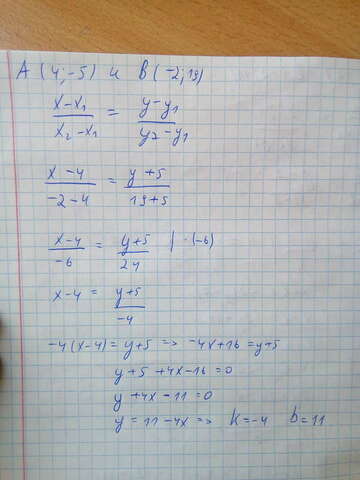 A (4;-5) и B(-2;19)
x-x₁/x₂-x₁ = y-y₁/y₂-y₁
x-4/-2-4 = y+5/19+5
x-4/-6 = y+5/24 | ·(-6)
x-4 = y+5/-4
-4(x-4)=y+5 => -4x+16=y+5
y+5+4x-16=0
y+4x-11=0
y=11-4x => k=-4 b=11